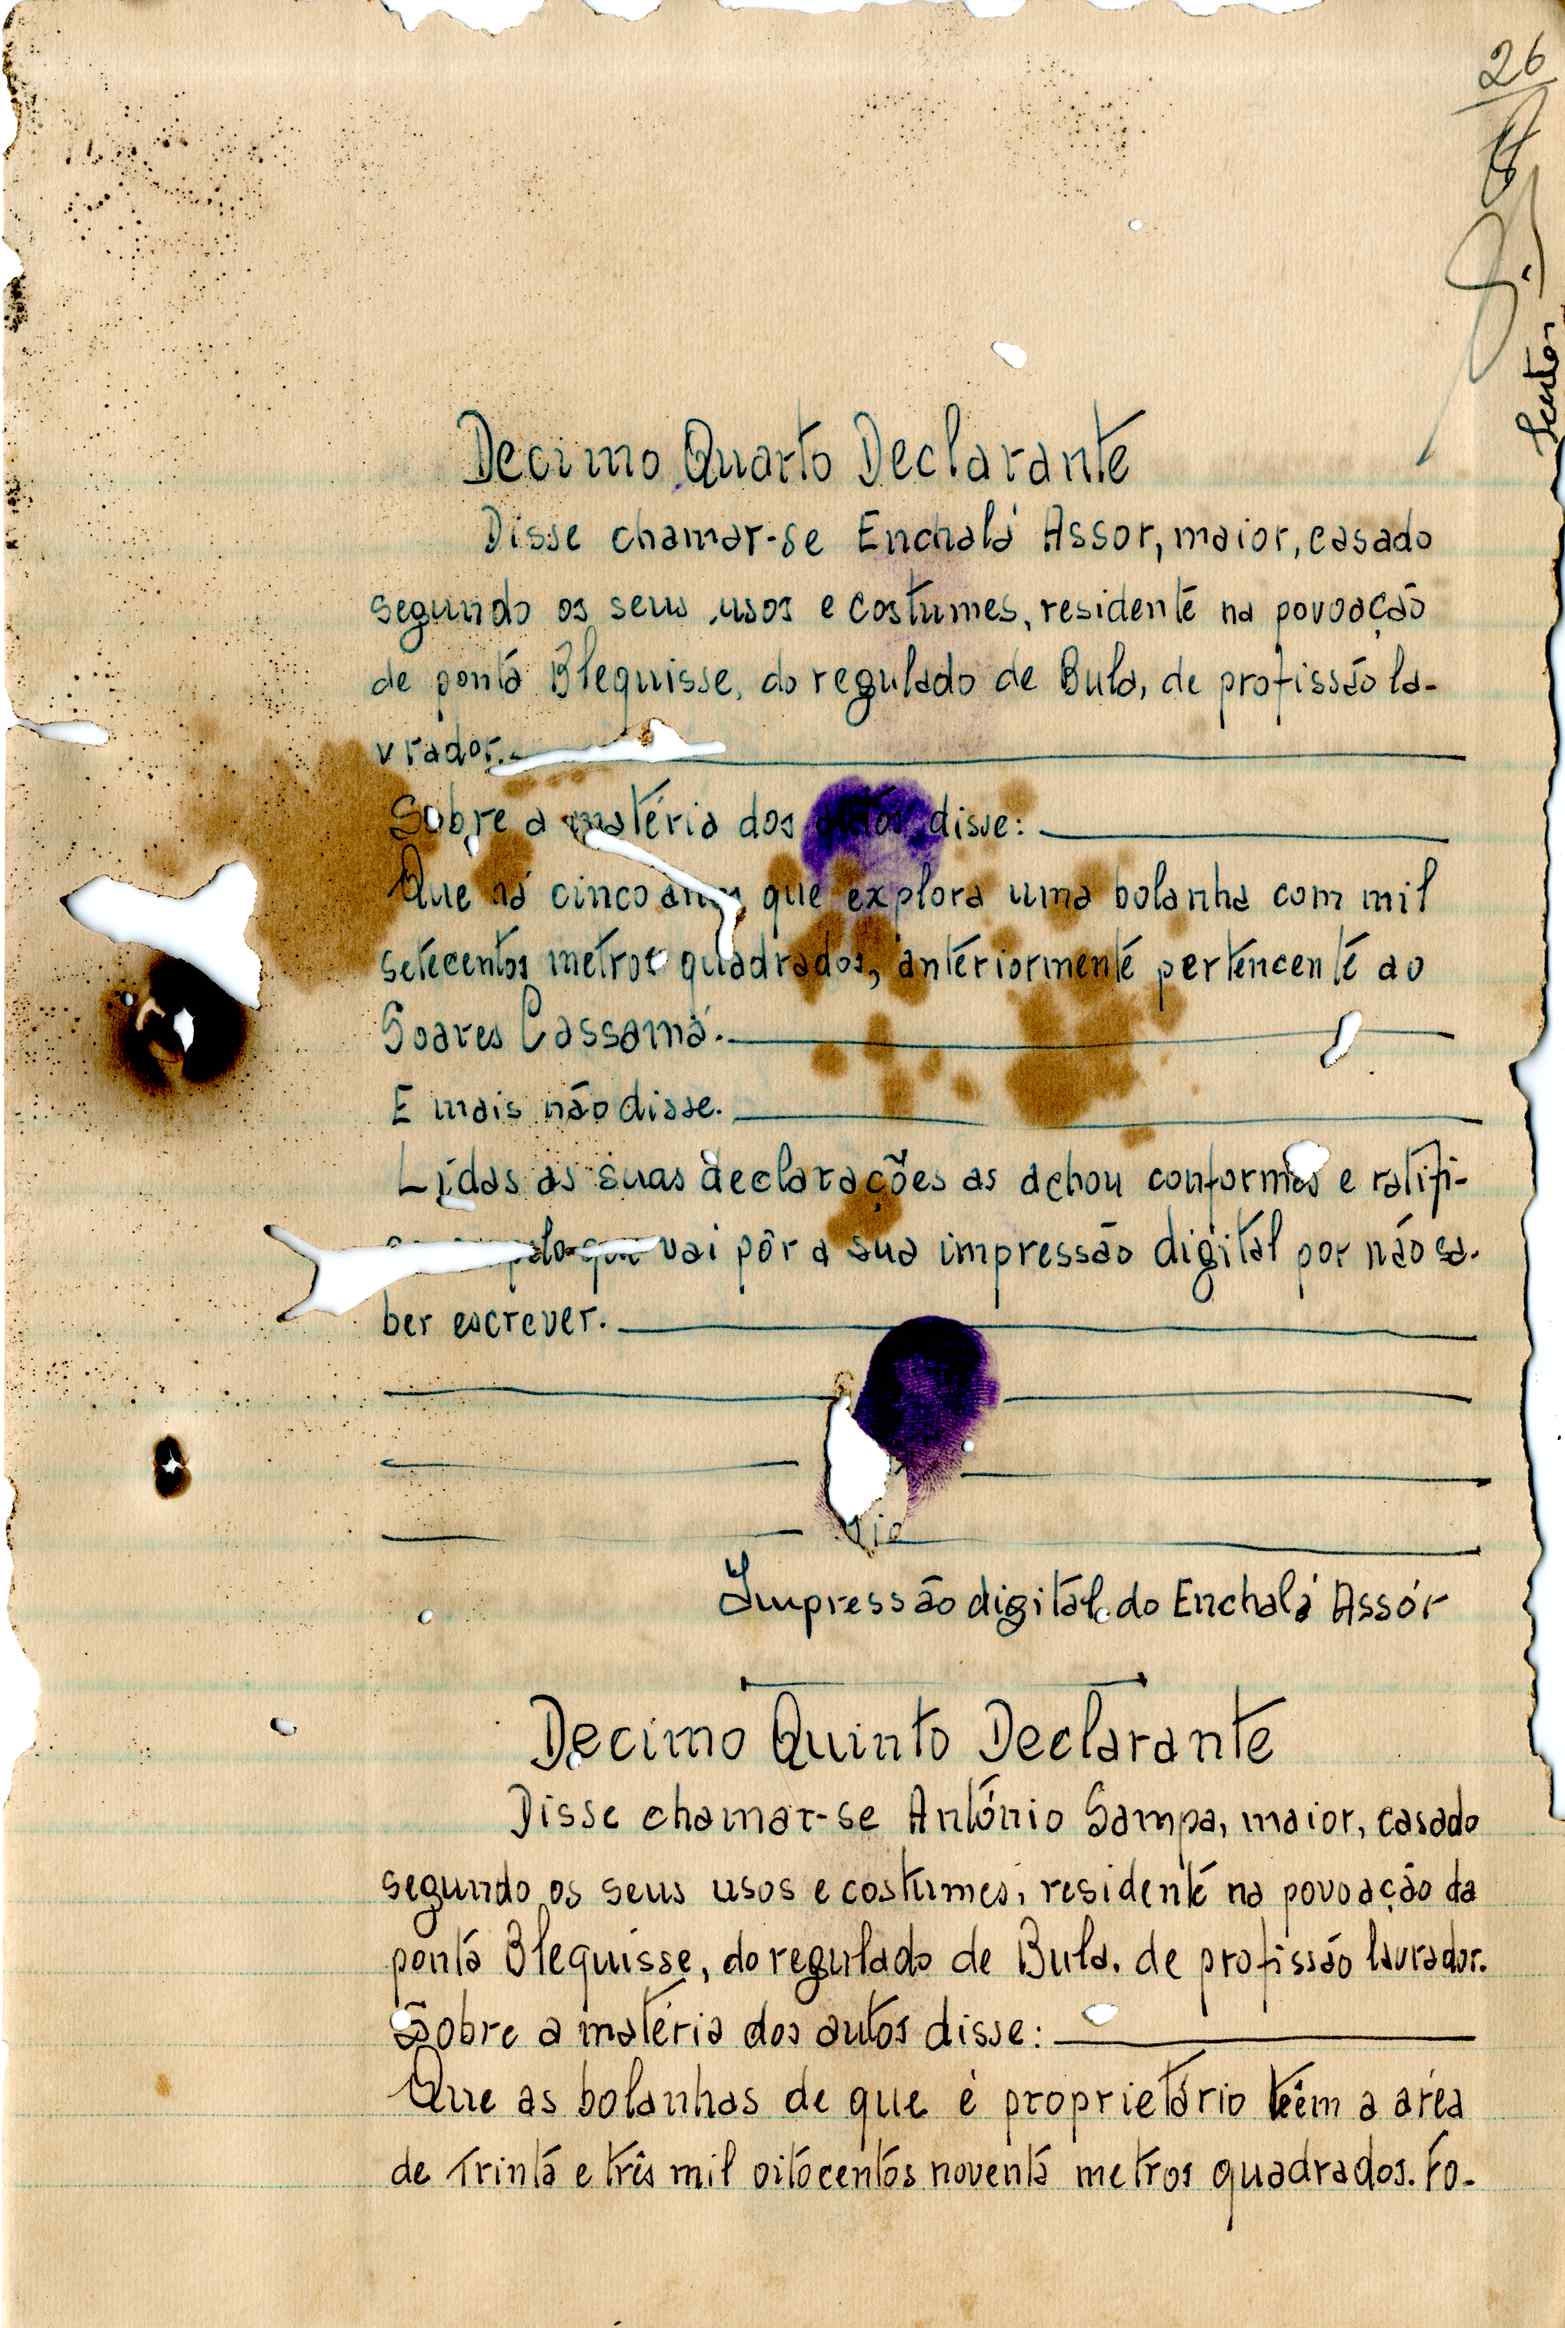 26
Santos
Decimo Quarto Declarante
Disse chamar-se Enchalá Assor, maior, casado
segundo os seus usos e costumes, residente na povoação
de ponta Blequisse, do regulado de Bula, de profissão la-
vrador.
Sobre a matéria dos autos disse:
Que há cinco anos que explora uma bolanha com mil
setecentos metros quadrados, anteriormente pertencente ao
Soares Cassamá.
E mais não disse.
Lidas as suas declarações as achou conformes e ratifi-
pelo que vai pôr a sua impressão digital por não sa-
ber escrever.
Impressão digital do Enchalá Assór
Decimo Quinto Declarante
Disse chamar-se António Sampa, maior, casado
segundo os seus usos e costumes, residente na povoação da
ponta Blequisse, do regulado de Bula, de profissão lavrador.
Sobre a matéria dos autos disse:
Que as bolanhas de que é proprietário têem a aréa
de trinta e três mil oitocentos noventa metros quadrados. Fo-